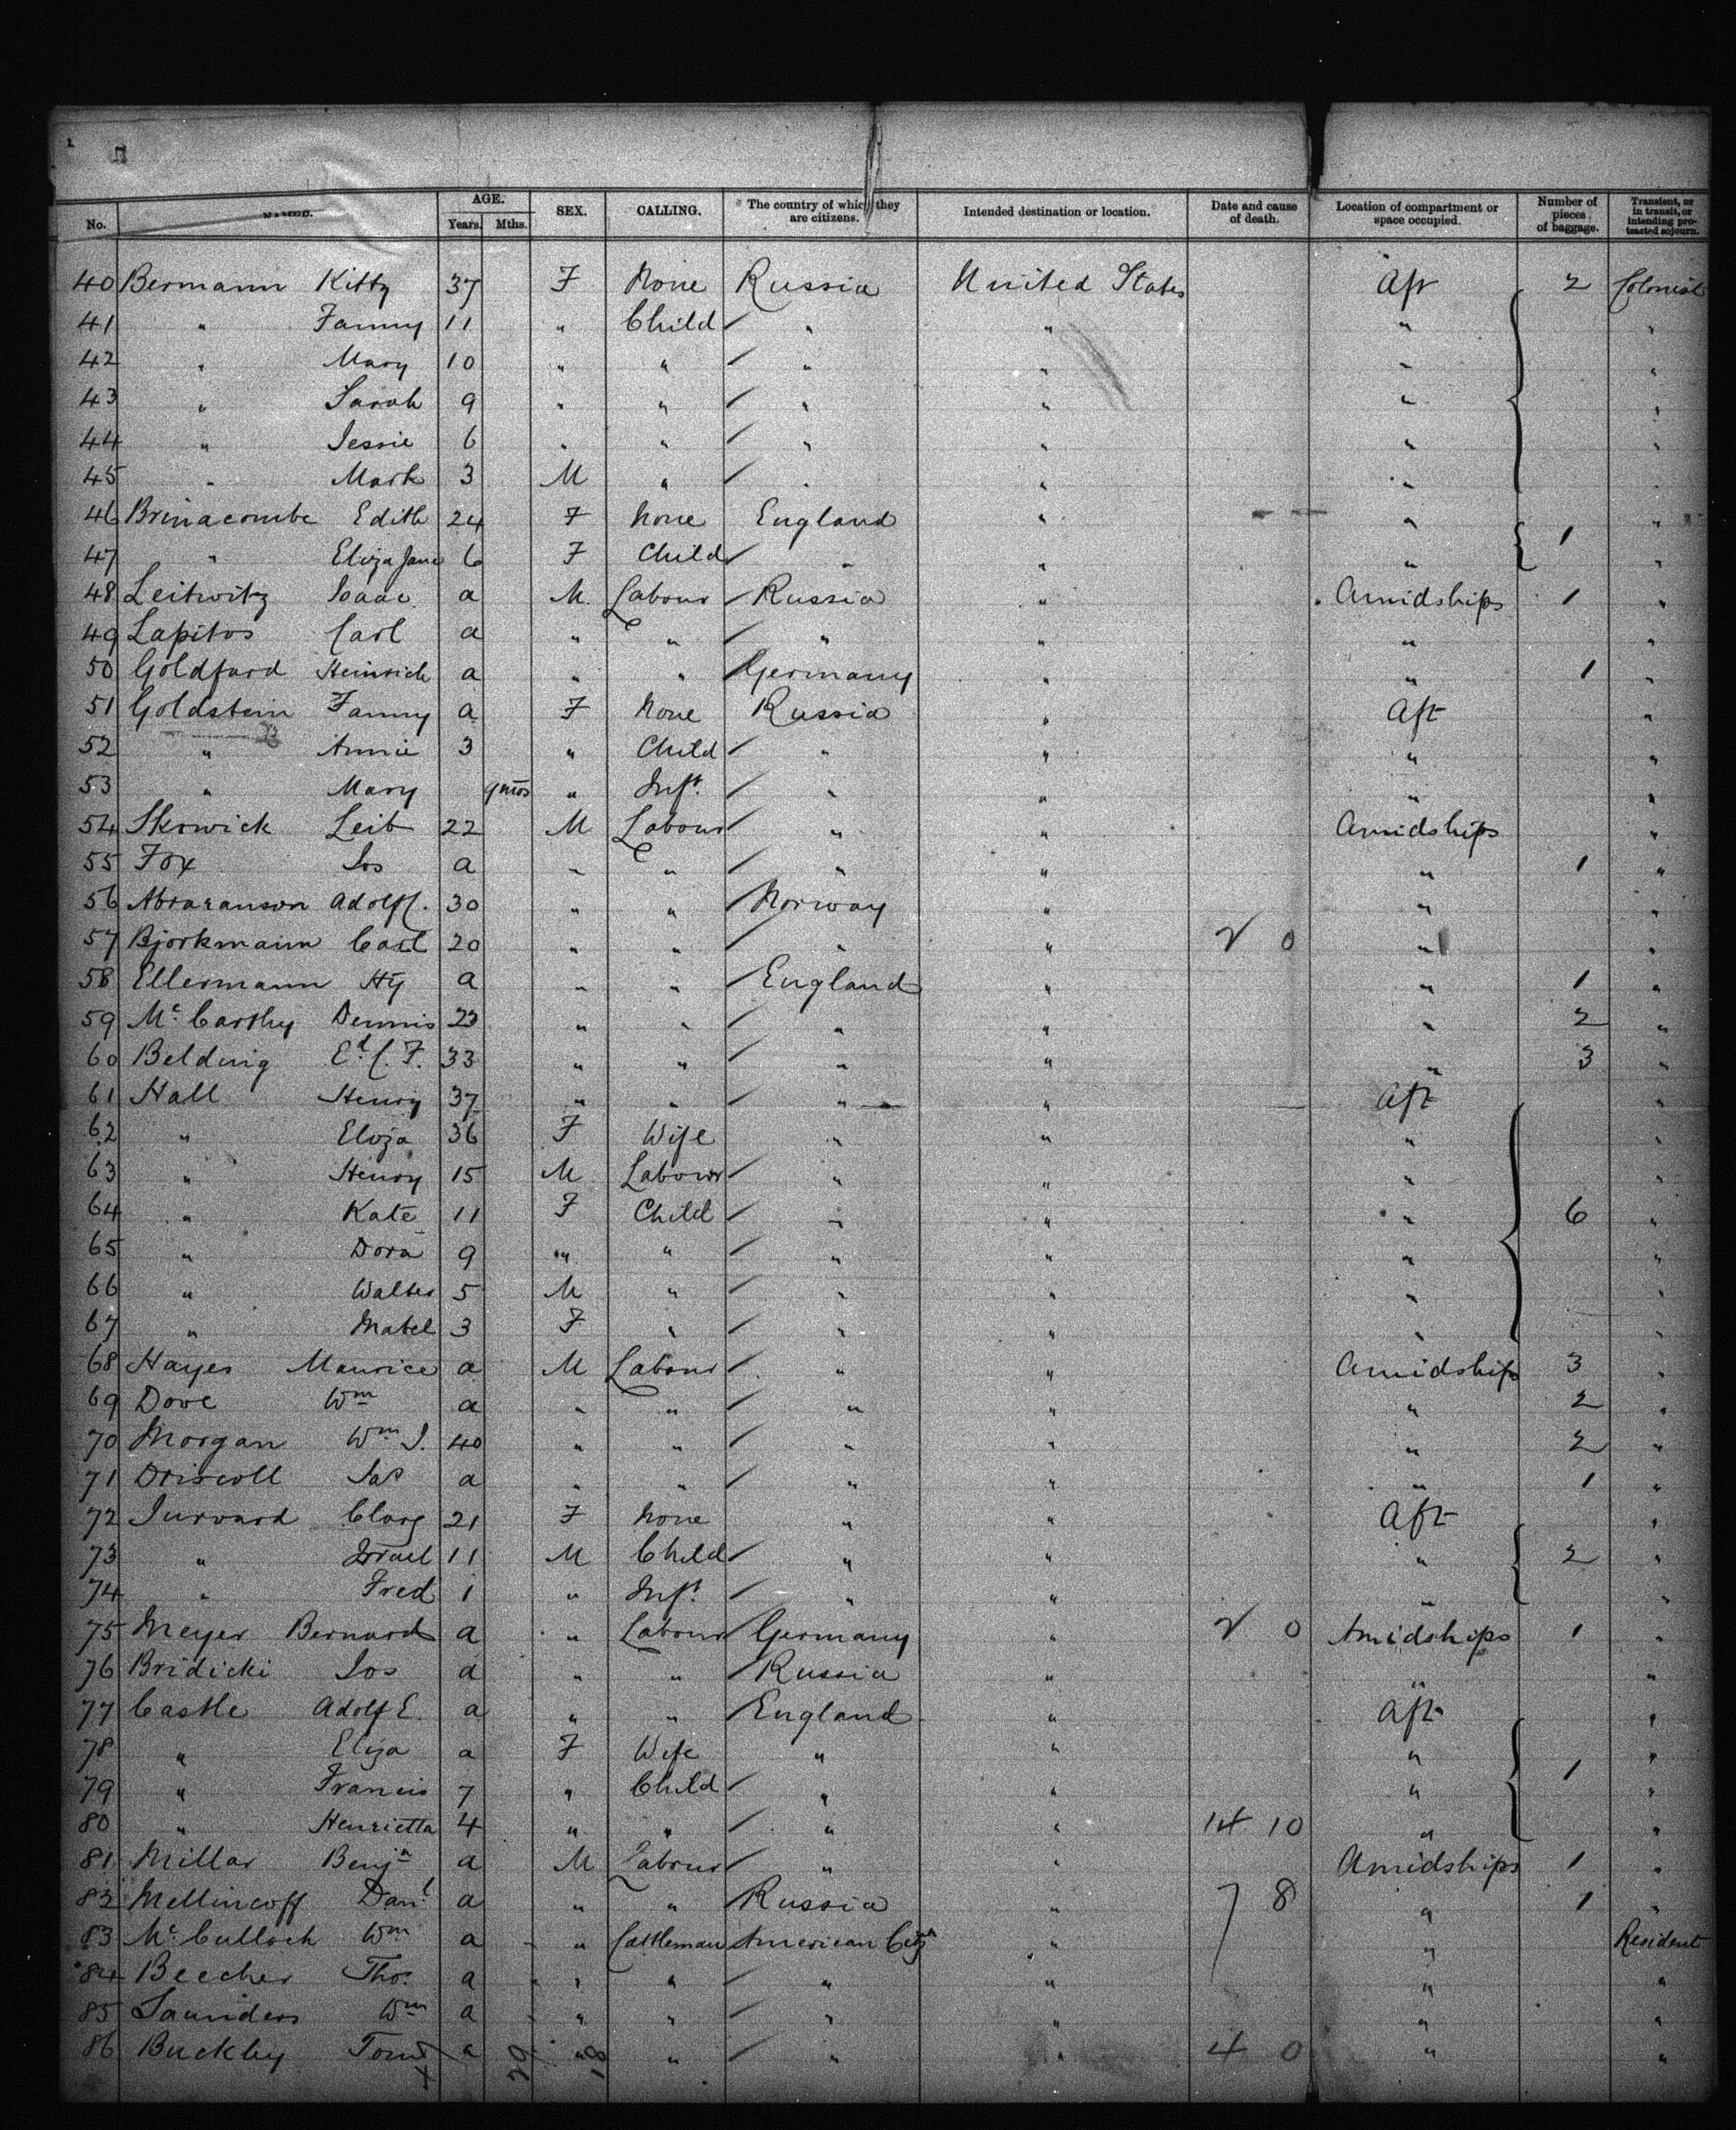 No. NAMES. AGE. Years. Mths. SEX. CALLING. The country of which they are citizens. Intended destination or location. Date and cause of death. Location of compartment or space occupied. Number of pieces of baggage. Transient, or in transit, or intending protracted sojourn.
40 Bermann Kitty 37 F None Russia United States Aft 2 Colonist
41 " Fanny 11 " Child " " " "
42 " Mary 10 " " " " " "
43 " Sarah 9 " " " " " "
44 " Jessie 6 " " " " " "
45 " Mark 3 M " " " " "
46 Brinacombe Edith 24 F None England " " 1 "
47 " Eliza Jane 6 F Child " " " "
48 Leitwitz Isaac a M Labour Russia " Amidships 1 "
49 Lapitos Carl a " " " " " "
50 Goldfard Heinrich a " " Germany " " 1 "
51 Goldstein Fanny a F None Russia " Aft "
52 " Annie 3 " Child " " " "
53 " Mary 9 mos " Inft. " " " "
54 Skrwick Leib 22 M Labour " " Amidships "
55 Fox Jos a " " " " " 1 "
56 Adolf C. 30 " " Norway " " "
57 Bjorkmann Carl 20 " " " " 2 0 " "
58 Ellermann Hy a " " England " " 1 "
59 Mc Carthy Dennis 23 " " " " " 2 "
60 Belding Ed C. F. 33 " " " " " 3 "
61 Hall Henry 37 " " " " Aft "
62 " Eliza 36 F Wife " " " "
63 " Henry 15 M Labour " " " "
64 " Kate 11 F Child " " " 6 "
65 " Dora 9 " " " " " "
66 " Walter 5 M " " " " "
67 " Mabel 3 F " " " " "
68 Hayes Maurice a M Labour " " Amidships 3 "
69 Dove Wm a " " " " " 2 "
70 Morgan Wm J. 40 " " " " " 2 "
71 Driscoll Jas a " " " " " 1 "
72 21 F None " " Aft "
73 " Israel 11 M Child " " " 2 "
74 " Fred 1 " Inft. " " " "
75 Meyer Bernard a " Labour Germany " 2 0 Amidships 1 "
76 Bridicki Jos a " " Russia " " "
77 Castle Adolf E. a " " England " Aft "
78 " Eliza a F Wife " " " "
79 " Francis 7 " Child " " " 1 "
80 " Henrietta 4 " " " " 14 10 " "
81 Millar Benjn a M Labour " " Amidships 1 "
82 Mellincoff Danl a " " Russia " 7 8 " 1 "
83 Mc Culloch Wm a " Cattleman American Citzn " " Resident
84 Beecher Thos. a " " " " " "
85 Saunders Wm a " " " " " "
86 Buckley Tom a " " " " 4 0 " "
29 18